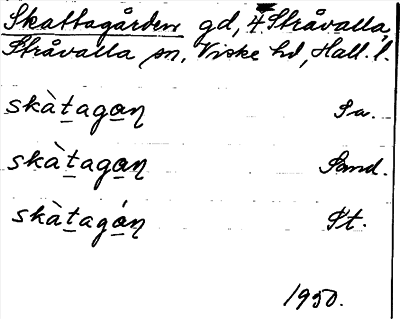 Skattagården gd, 4 Stråvalla,
Stråvalla sn, Viske hd, Hall. l.
skàtagan̥ Sa.
skàtagan̥ Sand.
skàtagán̥ St.
1950.